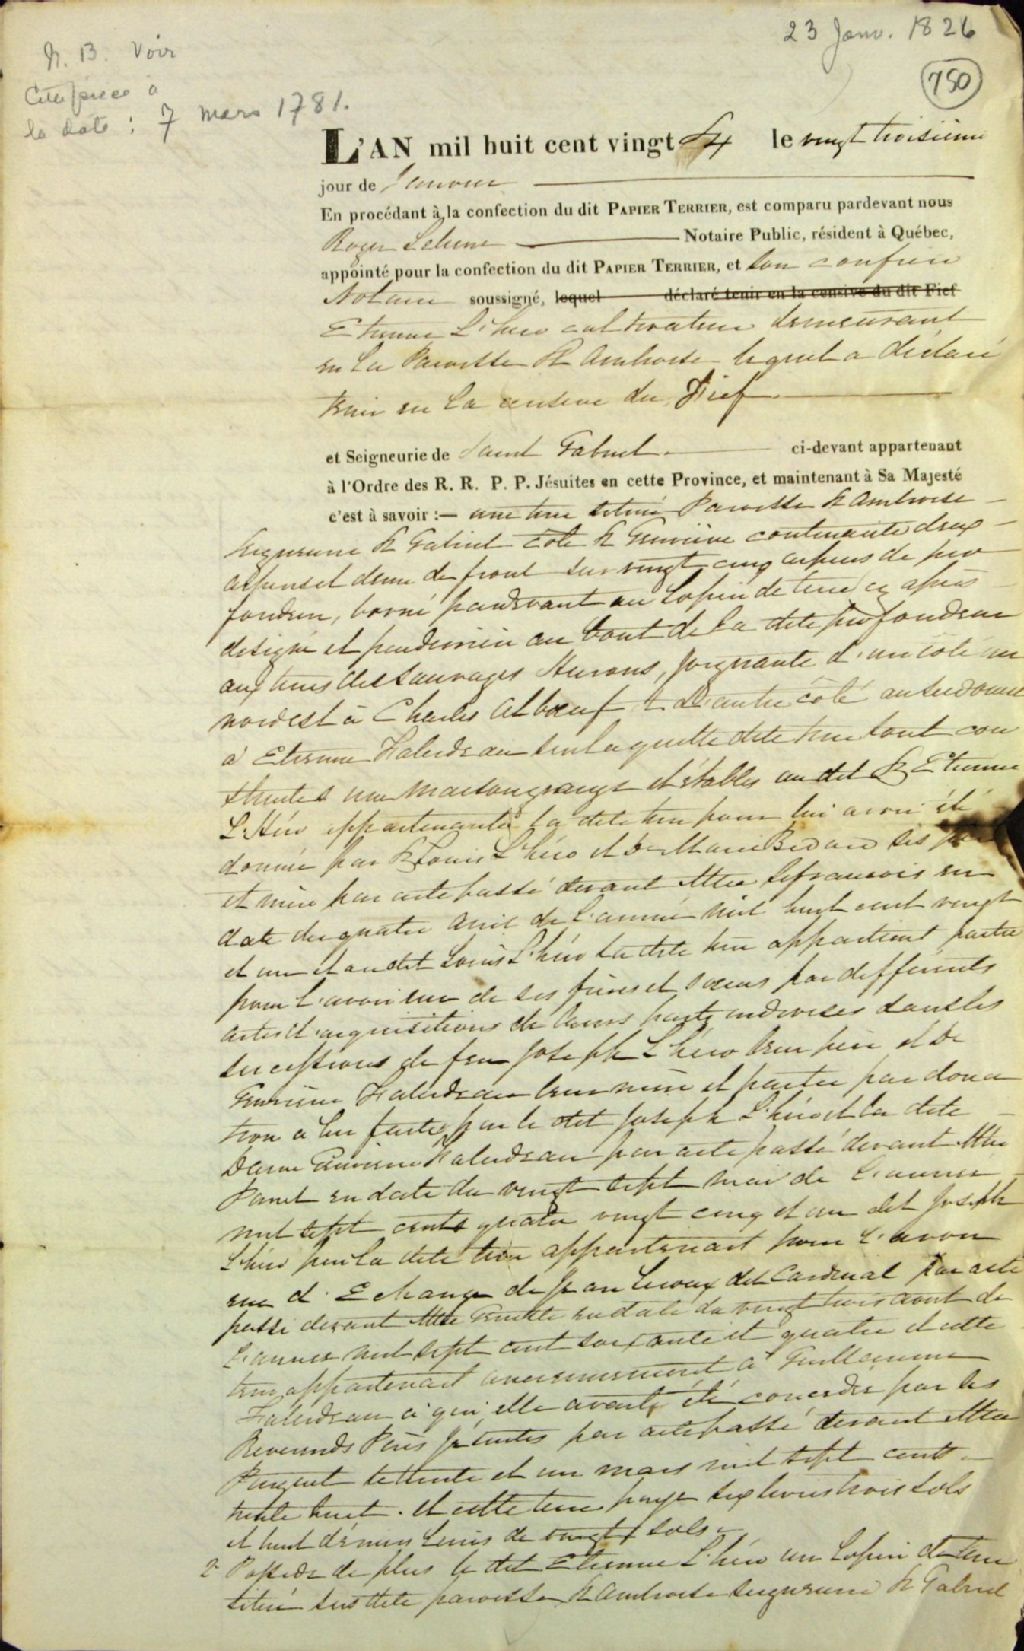 23 Janv. 1826
750
N. B. Voir
Cette pièce à
la date : 7 mars 1781.
L'AN mil huit cent vingt six le vingt troisième
jour de Janvier
En procédant à la confection du dit PAPIER TERRIER, est comparu pardevant nous
Roger Lelievre Notaire Public, résident à Québec,
appointé pour la confection du dit PAPIER TERRIER, et son confrère
Notaire soussigné, lequel déclaré tenir en la censive du dit Fief
Etienne L'hero cultivateur demeurant
en la Paroisse St Ambroise lequel a déclaré
tenir en la censive du Fief
et Seigneurie de Saint Gabriel ci-devant appartenant
à l'Ordre des R. R. P. P. Jésuites en cette Province, et maintenant à Sa Majesté
c'est à savoir :— une terre située Paroisse St Ambroise
Seigneurie St Gabriel côte St Geneviève contenante deux
arpens et demi de front sur vingt cinq arpens de pro
fondeur, borné pardevant au lopin de terre cy après
designé et parderrière au bout de la dite profondeur
aux terres des Sauvages Hurons, joignante d'un côté au
nordest à Charles Alboeuf & d'autre côté au sudouest
à Etienne Falardeau sur laquelle dite terre sont con
struites une maison grange et étables au dit St Etienne
L'Héro appartenante la dite terre pour lui avoir été
donnée par St Louis L'héro et De Marie Bedard ses père
et mère par acte passé devant Mtre Lefrancois en
date du quatre avril de l'année mil huit cent vingt
et un et au dit Louis L'héro la dite terre appartient partie
pour l'avoir eue de ses frères et soeurs par différents
actes d'acquisitions de leurs parts indivises dans les
successions de feu Joseph L'héro leur père et De
Geneviève Falardeau leur mère et partie par dona
tion à lui faite par le dit Joseph L'héro et la dite
Dame Geneviève Falardeau par acte passé devant Mtre
Panet en date du vingt sept mai de l'année
mil sept cents quatre vingt cinq et au dit Joseph
L'héro père la dite terre appartenait pour l'avoir
eue d'Echange de Jean Leroux dit Cardinal par acte
passé devant Mtre Genette en date du vingt trois aout de
l'année mil sept cent soixante et quatre et cette
terre appartenait anciennement à Guillaume
Falardeau à qui elle avait été concédée par les
Reverends Pères Jésuites par acte passé devant Mtre
Pinguet le trente et un mars mil sept cent
trente huit. et cette terre paye six livres trois sols
et huit déniers Tournois de vingt sols.
2o Possede de plus le dit Etienne L'héro un Lopin de terre
situé sus dite paroisse St Ambroise seigneurie St Gabriel